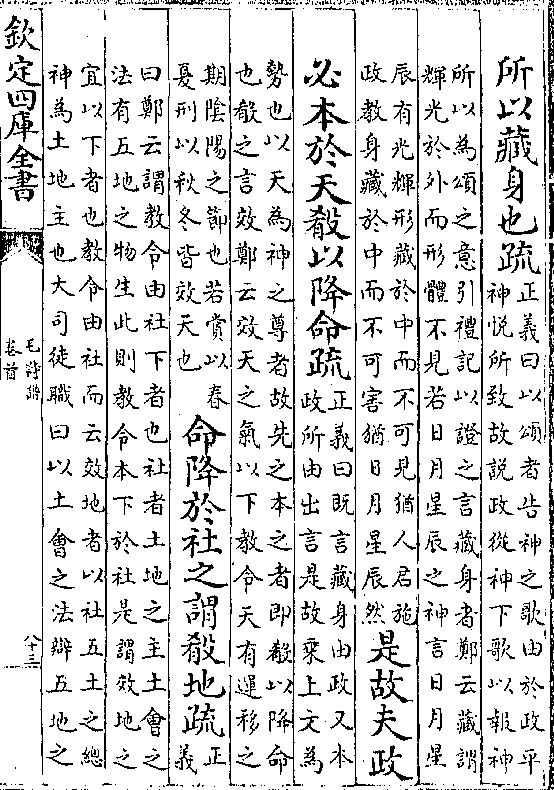 所以藏身也疏正義曰以頌者告神之歌由於政平
神悦所致故説政從神下歌以報神
所以為頌之意引禮記以證之言藏身者鄭云藏謂
輝光於外而形體不見若日月星辰之神言日月星
辰有光輝形藏於中而不可見猶人君施
政教身藏於中而不可害猶日月星辰然是故夫政
必本於天殽以降命疏正義曰既言藏身由政又本
政所由出言是故乘上文為
勢也以天為神之尊者故先之本之者即殽以降命
也殽之言效鄭云效天之氣以下教令天有運移之
期陰陽之節也若賞以春
夏刑以秋冬皆效天也命降於社之謂殽地疏正義
曰鄭云謂教令由社下者也社者土地之主土會之
法有五地之物生此則教令本下於社是謂效地之
宜以下者也教令由社而云效地者以社五土之總
神為土地主也大司徒職曰以土會之法辦五地之
欽定四庫全書
毛詩譜
卷首
八十三